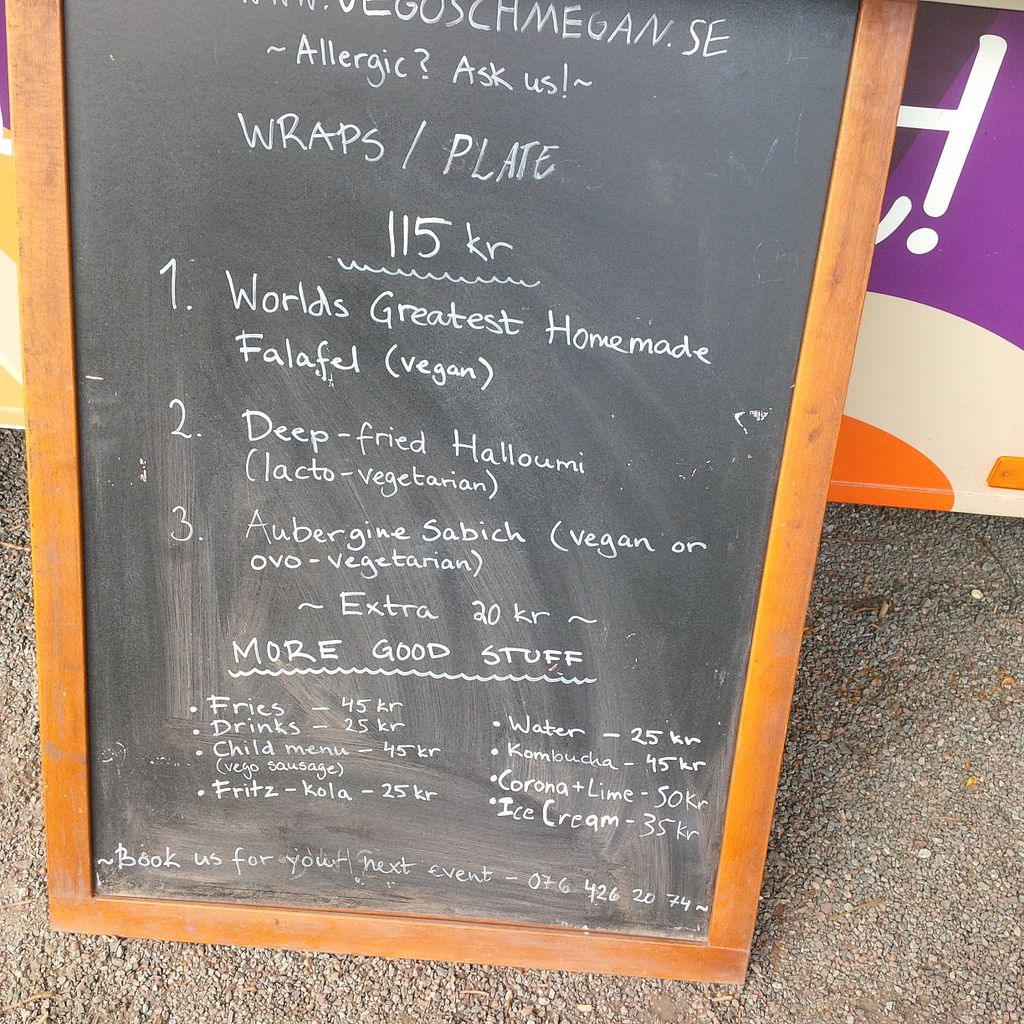 WWW.VEGOSCHMEGAN.SE
~Allergic? Ask us!~
WRAPS / PLATE
115 kr
1. Worlds Greatest Homemade
Falafel (vegan)
2. Deep-fried Halloumi
(lacto-vegetarian)
3. Aubergine Sabich (vegan or
ovo-vegetarian)
~ Extra 20 kr ~
MORE GOOD STUFF
• Fries – 45 kr
• Drinks – 25 kr
• Child menu – 45 kr
(vego sausage)
• Fritz-kola – 25 kr
• Water – 25 kr
• Kombucha – 45 kr
• Corona + Lime - 50 kr
• Ice Cream - 35 kr
~Book us for your next event – 076 426 20 74~